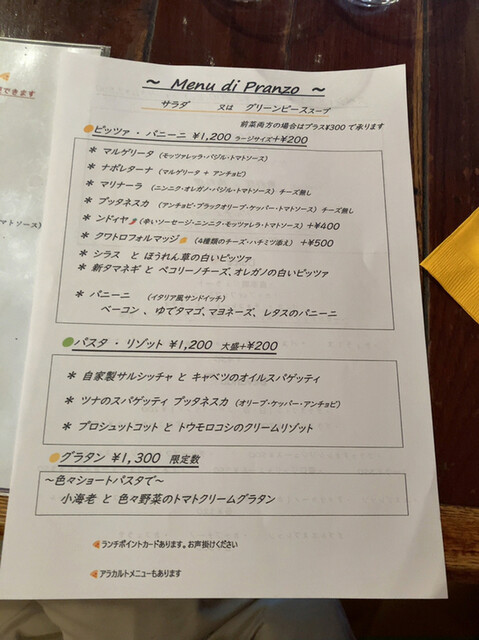 ～ Menu di Pranzo ～
サラダ 又は グリーンピーススープ
前菜両方の場合はプラス¥300で承ります
ピッツァ・パニーニ ¥1,200 ラージサイズ+¥200
＊ マルゲリータ （モッツァレッラ・バジル・トマトソース）
＊ ナポレターナ （マルゲリータ + アンチョビ）
＊ マリナーラ （ニンニク・オレガノ・バジル・トマトソース） チーズ無し
＊ プッタネスカ （アンチョビ・ブラックオリーブ・ケッパー・トマトソース） チーズ無し
＊ ンドィヤ （辛いソーセージ・ニンニク・モッツァレラ・トマトソース） +¥400
＊ クワトロフォルマッジ （4種類のチーズ・ハチミツ添え） +¥500
＊ シラス と ほうれん草の白いピッツァ
＊ 新タマネギ と ペコリーノチーズ、オレガノの白いピッツァ
＊ パニーニ （イタリア風サンドイッチ）
ベーコン 、ゆでタマゴ、マヨネーズ、レタスのパニーニ
パスタ ・ リゾット ¥1,200 大盛+¥200
＊ 自家製サルシッチャ と キャベツのオイルスパゲッティ
＊ ツナのスパゲッティ プッタネスカ （オリーブ・ケッパー・アンチョビ）
＊ プロシュットコット と トウモロコシのクリームリゾット
グラタン ¥1,300 限定数
～色々ショートパスタで～
小海老 と 色々野菜のトマトクリームグラタン
ランチポイントカードあります。お声掛けください
アラカルトメニューもあります
できます
トマトソース）